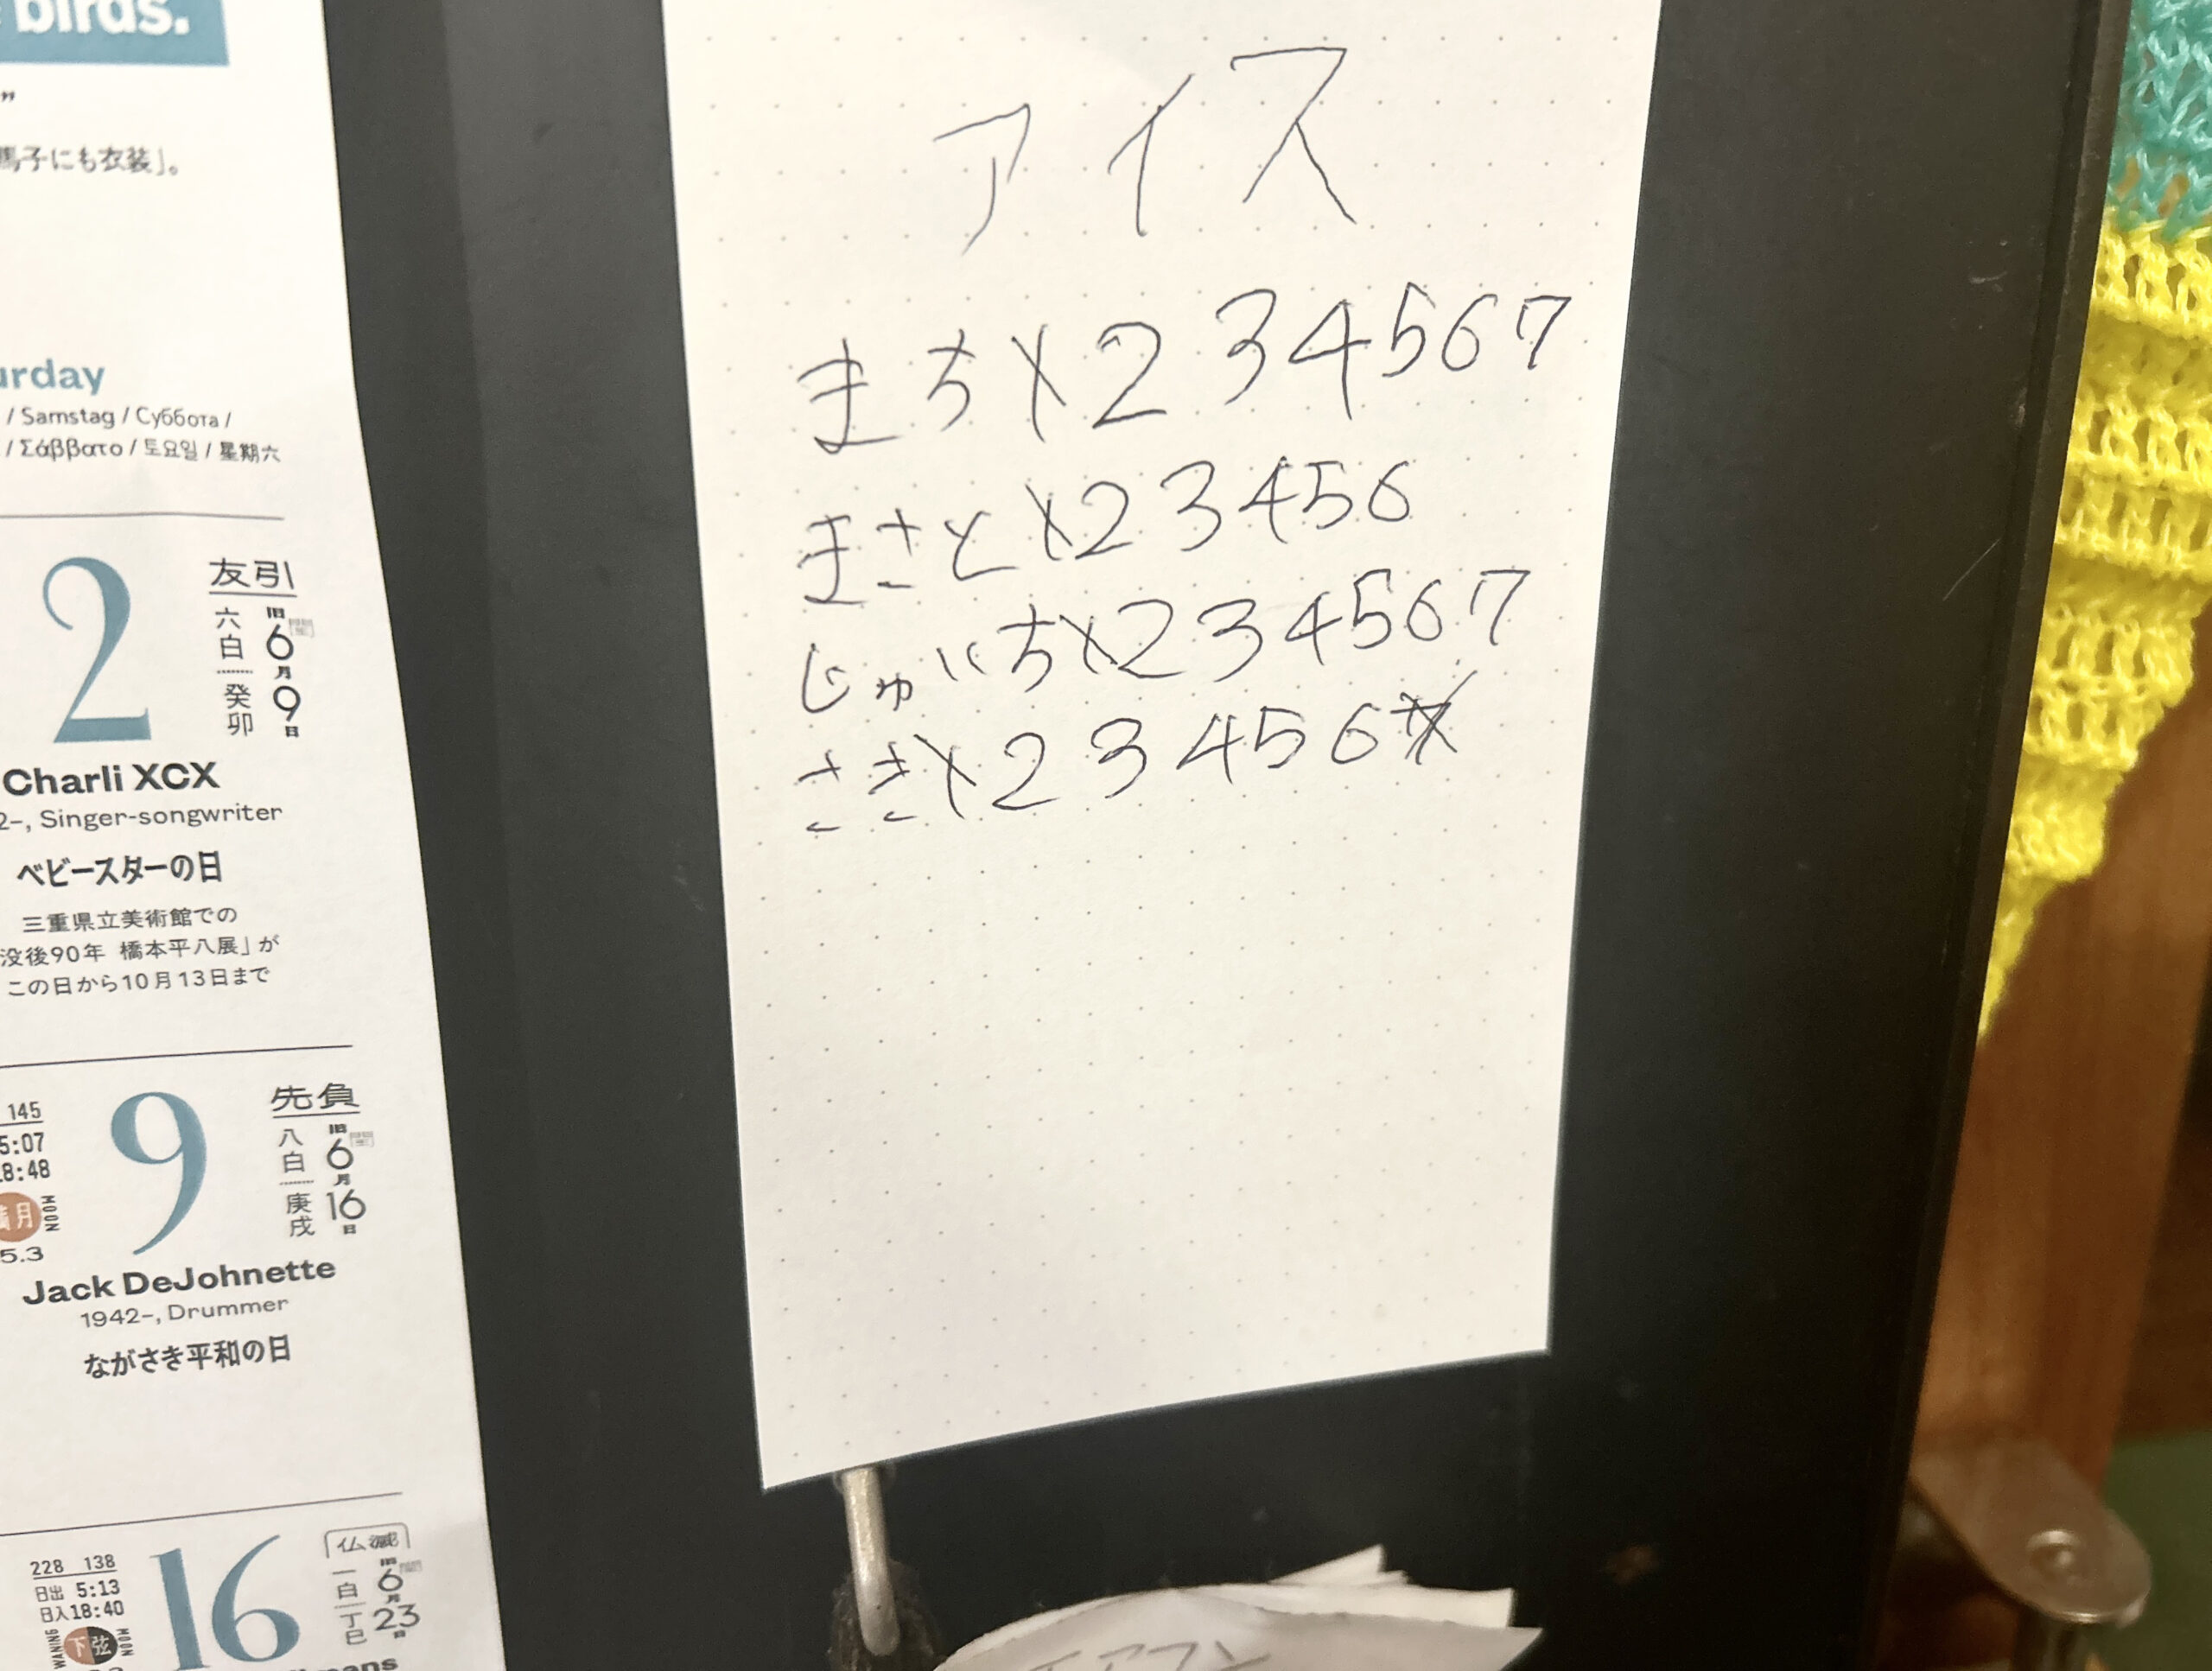 birds.
”
馬子にも衣装」。
urday
/ Samstag / Суббота /
/ Σάββατο / 토요일 / 星期六
2
友引
六白
癸卯
旧6月9日
Charli XCX
2–, Singer-songwriter
ベビースターの日
三重県立美術館での
没後90年 橋本平八展」が
この日から10月13日まで
145
5:07
18:48
満月
MOON
5.3
9
先負
八白
庚戌
旧6月16日
Jack DeJohnette
1942–, Drummer
ながさき平和の日
228 138
日出 5:13
日入 18:40
WANING
下弦
MOON
16
仏滅
一白
丁巳
旧6月23日
アイス
まち X 2 3 4 5 6 7
まさと X 2 3 4 5 6
じゅいち X 2 3 4 5 6 7
さき X 2 3 4 5 6